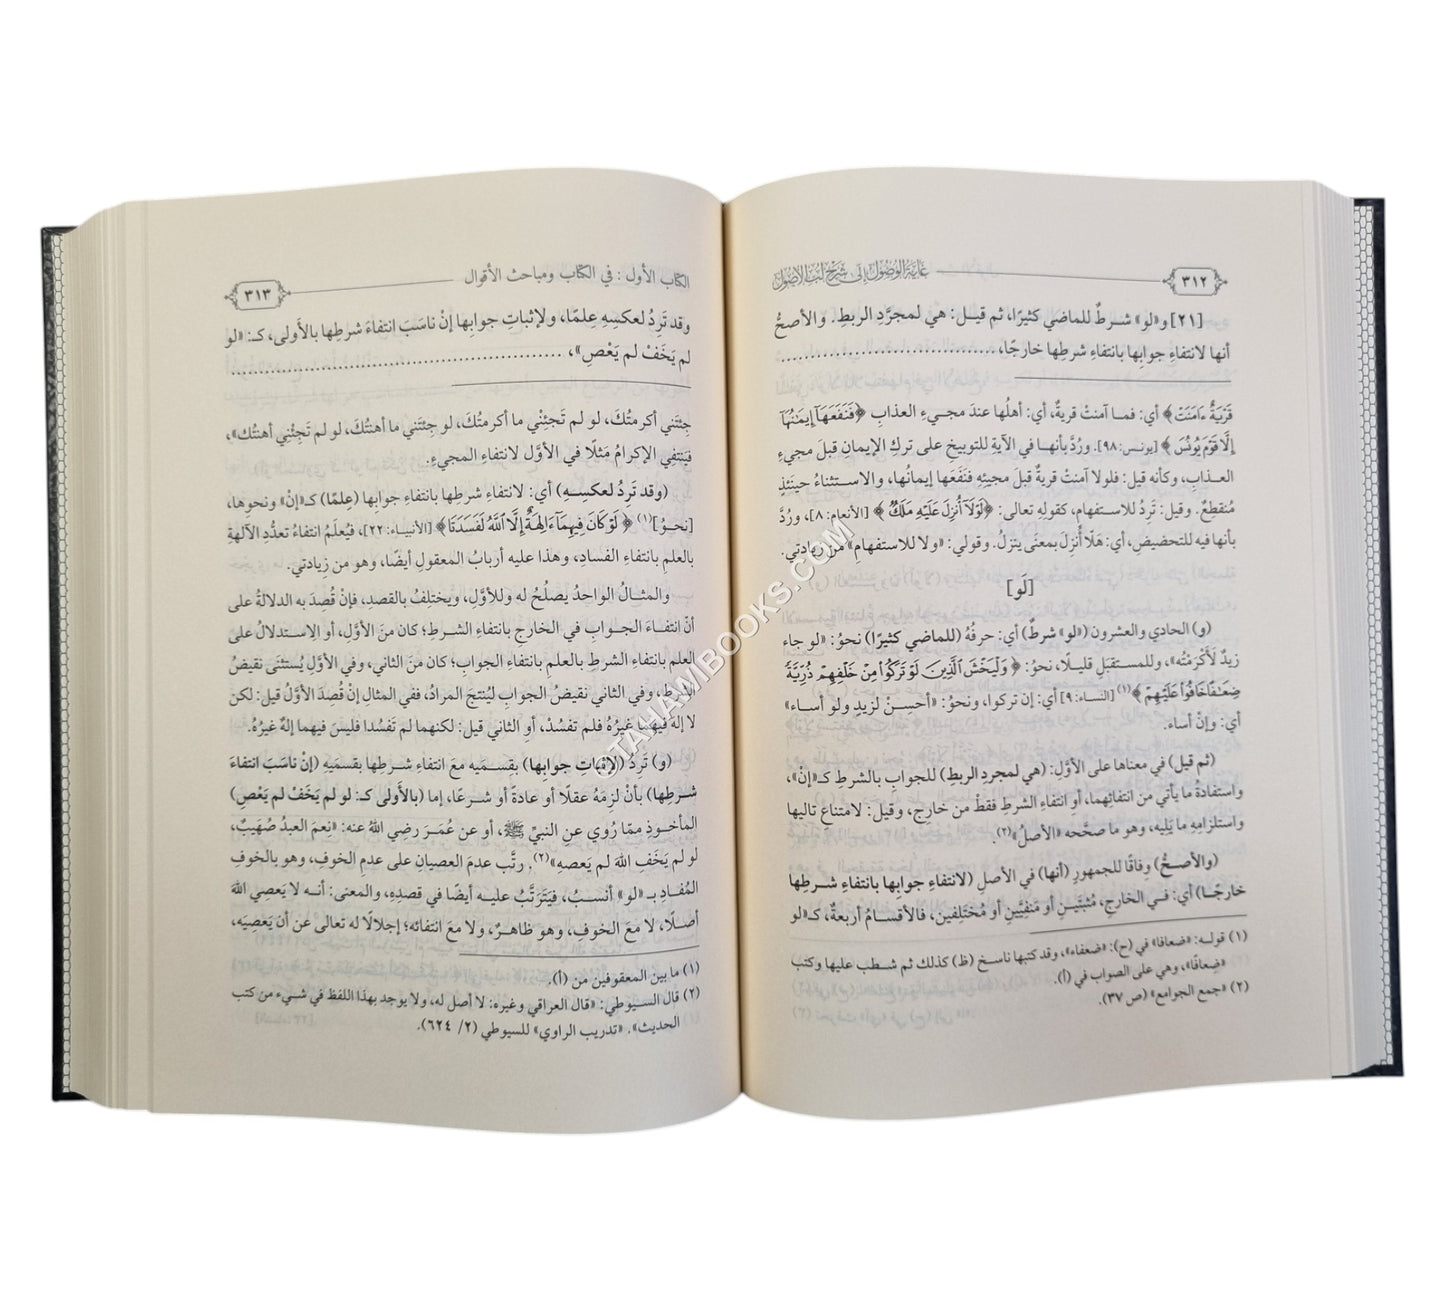 ٣١٢
غاية الوصول إلى شرح لب الأصول
[٢١] و«لو» شرطٌ للماضي كثيرًا، ثم قيل: هي لمجرَّدِ الربطِ. والأصحُّ
أنها لانتفاءِ جوابِها بانتفاءِ شرطِها خارجًا، ..............................
قَرْيَةٌ ءَامَنَتْ﴾ أي: فما آمنتْ قريةٌ، أي: أهلُها عندَ مجيءِ العذابِ ﴿فَنَفَعَهَآ إِيمَٰنُهَآ
إِلَّا قَوْمَ يُونُسَ﴾ [يونس: ٩٨]. ورُدَّ بأنها في الآيةِ للتوبيخِ على تركِ الإيمانِ قبلَ مجيءِ
العذابِ، وكأنه قيل: فلولا آمنتْ قريةٌ قبلَ مجيئِه فنَفَعَها إيمانُها، والاستثناءُ حينَئذٍ
مُنقطِعٌ. وقيل: تَرِدُ للاستفهامِ، كقولِه تعالى: ﴿لَوْلَآ أُنزِلَ عَلَيْهِ مَلَكٌ﴾ [الأنعام: ٨]، ورُدَّ
بأنها فيه للتحضيضِ، أي: هَلَّا أُنزِلَ بمعنَى ينزلُ. وقولي: «ولا للاستفهامِ» من زيادتي.
[لَو]
(و) الحادي والعشرون («لو» شرطٌ) أي: حرفُهُ (للماضي كثيرًا) نحوُ: «لو جاء
زيدٌ لَأَكْرَمْتُه»، وللمستقبَلِ قليلًا، نحوُ: ﴿وَلْيَخْشَ ٱلَّذِينَ لَوْ تَرَكُوا۟ مِنْ خَلْفِهِمْ ذُرِّيَّةً
ضِعَٰفًا خَافُوا۟ عَلَيْهِمْ﴾(١) [النساء: ٩] أي: إن تركوا، ونحوُ: «أحسِنْ لزيدٍ ولو أساء»
أي: وإنْ أساء.
(ثم قيل) في معناها على الأوَّلِ: (هي لمجردِ الربطِ) للجوابِ بالشرطِ كـ«إنْ»،
واستفادةُ ما يأتي من انتفائِهما، أو انتفاءِ الشرطِ فقطْ من خارجٍ، وقيل: لامتناعِ تاليها
واستلزامِهِ ما يَلِيه، وهو ما صحَّحه «الأصلُ»(٢).
(والأصحُّ) وفاقًا للجمهورِ (أنها) في الأصلِ (لانتفاءِ جوابِها بانتفاءِ شرطِها
خارجًا) أي: في الخارجِ، مُثبَتَيْنِ أو مَنفِيَّينِ أو مُختَلِفينِ، فالأقسامُ أربعةٌ، كـ«لو
(١) قوله: «ضعافا» في (ح): «ضعفاء»، وقد كتبها ناسخ (ظ) كذلك ثم شطب عليها وكتب
«ضعافًا»، وهي على الصواب في (أ).
(٢) «جمع الجوامع» (ص ٣٧).
الكتاب الأول: في الكتاب ومباحث الأقوال
٣١٣
وقد تَرِدُ لعكسِهِ عِلمًا، ولإثباتِ جوابِها إنْ ناسَبَ انتفاءَ شرطِها بالأَولى، كـ: «لو
لم يَخَفْ لم يَعْصِ»، ..............................
جِئتَني أكرمتُكَ، لو لم تَجِئْني ما أكرمتُكَ، لو جِئتَني ما أهنتُكَ، لو لم تَجِئْني أهنتُك»،
فيَنتفِي الإكرامُ مَثلًا في الأوَّلِ لانتفاءِ المجيءِ.
(وقد تَرِدُ لعكسِهِ) أي: لانتفاءِ شرطِها بانتفاءِ جوابِها (عِلمًا) كـ«إنْ» ونحوِها،
[نحوُ](١) ﴿لَوْ كَانَ فِيهِمَآ ءَالِهَةٌ إِلَّا ٱللَّهُ لَفَسَدَتَا﴾ [الأنبياء: ٢٢]، فيُعلَمُ انتفاءُ تعدُّدِ الآلهةِ
بالعلمِ بانتفاءِ الفسادِ، وهذا عليه أربابُ المعقولِ أيضًا، وهو من زِيادتي.
والمثالُ الواحدُ يصلُحُ له وللأوَّلِ، ويختلِفُ بالقصدِ، فإنْ قُصدَ به الدلالةُ على
أنَّ انتفاءَ الجوابِ في الخارجِ بانتفاءِ الشرطِ؛ كان منَ الأوَّلِ، أو الاستدلالُ على
العلمِ بانتفاءِ الشرطِ بالعلمِ بانتفاءِ الجوابِ؛ كان منَ الثاني، وفي الأوَّلِ يُستثنَى نقيضُ
الشرطِ، وفي الثاني نقيضُ الجوابِ ليُنتِجَ المرادُ، ففي المثالِ إنْ قُصدَ الأوَّلُ قيل: لكن
لا إلهَ فيهما غيرُهُ فلم تفسُدْ، أو الثاني قيل: لكنهما لم تَفسُدا فليسَ فيهما إلهٌ غيرُهُ.
(و) تَرِدُ (لإثباتِ جوابِها) بقِسمَيه معَ انتفاءِ شرطِها بقسمَيهِ (إنْ ناسَبَ انتفاءَ
شرطِها) بأنْ لزِمَهُ عقلًا أو عادةً أو شرعًا، إما (بالأَولى كـ: لو لم يَخَفْ لم يَعْصِ)
المأخوذِ ممّا رُوي عنِ النبيِّ ﷺ، أو عن عُمَرَ رضي اللهُ عنه: «نِعمَ العبدُ صُهَيبٌ،
لو لم يَخَفِ اللهَ لم يَعصهِ»(٢). رتَّب عدمَ العصيانِ على عدمِ الخوفِ، وهو بالخوفِ
المُفادِ بـ «لو» أنسبُ، فيَتَرتَّبُ عليه أيضًا في قصدِه، والمعنى: أنه لا يَعصِي اللهَ
أصلًا، لا معَ الخوفِ، وهو ظاهرٌ، ولا معَ انتفائه؛ إجلالًا له تعالى عن أن يَعصِيَه،
(١) ما بين المعقوفين من (أ).
(٢) قال السيوطي: «قال العراقي وغيره: لا أصل له، ولا يوجد بهذا اللفظ في شيء من كتب
الحديث». «تدريب الراوي» للسيوطي (٢/ ٦٢٤).
©TAHAMIBOOKS.COM